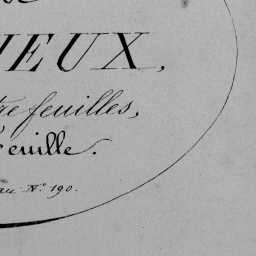 IEUX,
feuilles,
feuille.
au N.° 190.